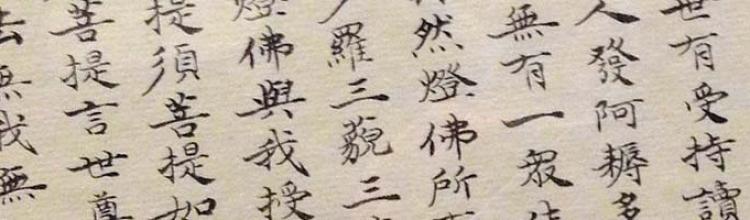 世有受持讀
人發阿耨多
無有一眾生
然燈佛所
羅三藐三
燈佛與我授
提須菩提如
菩提言世尊
去無我無